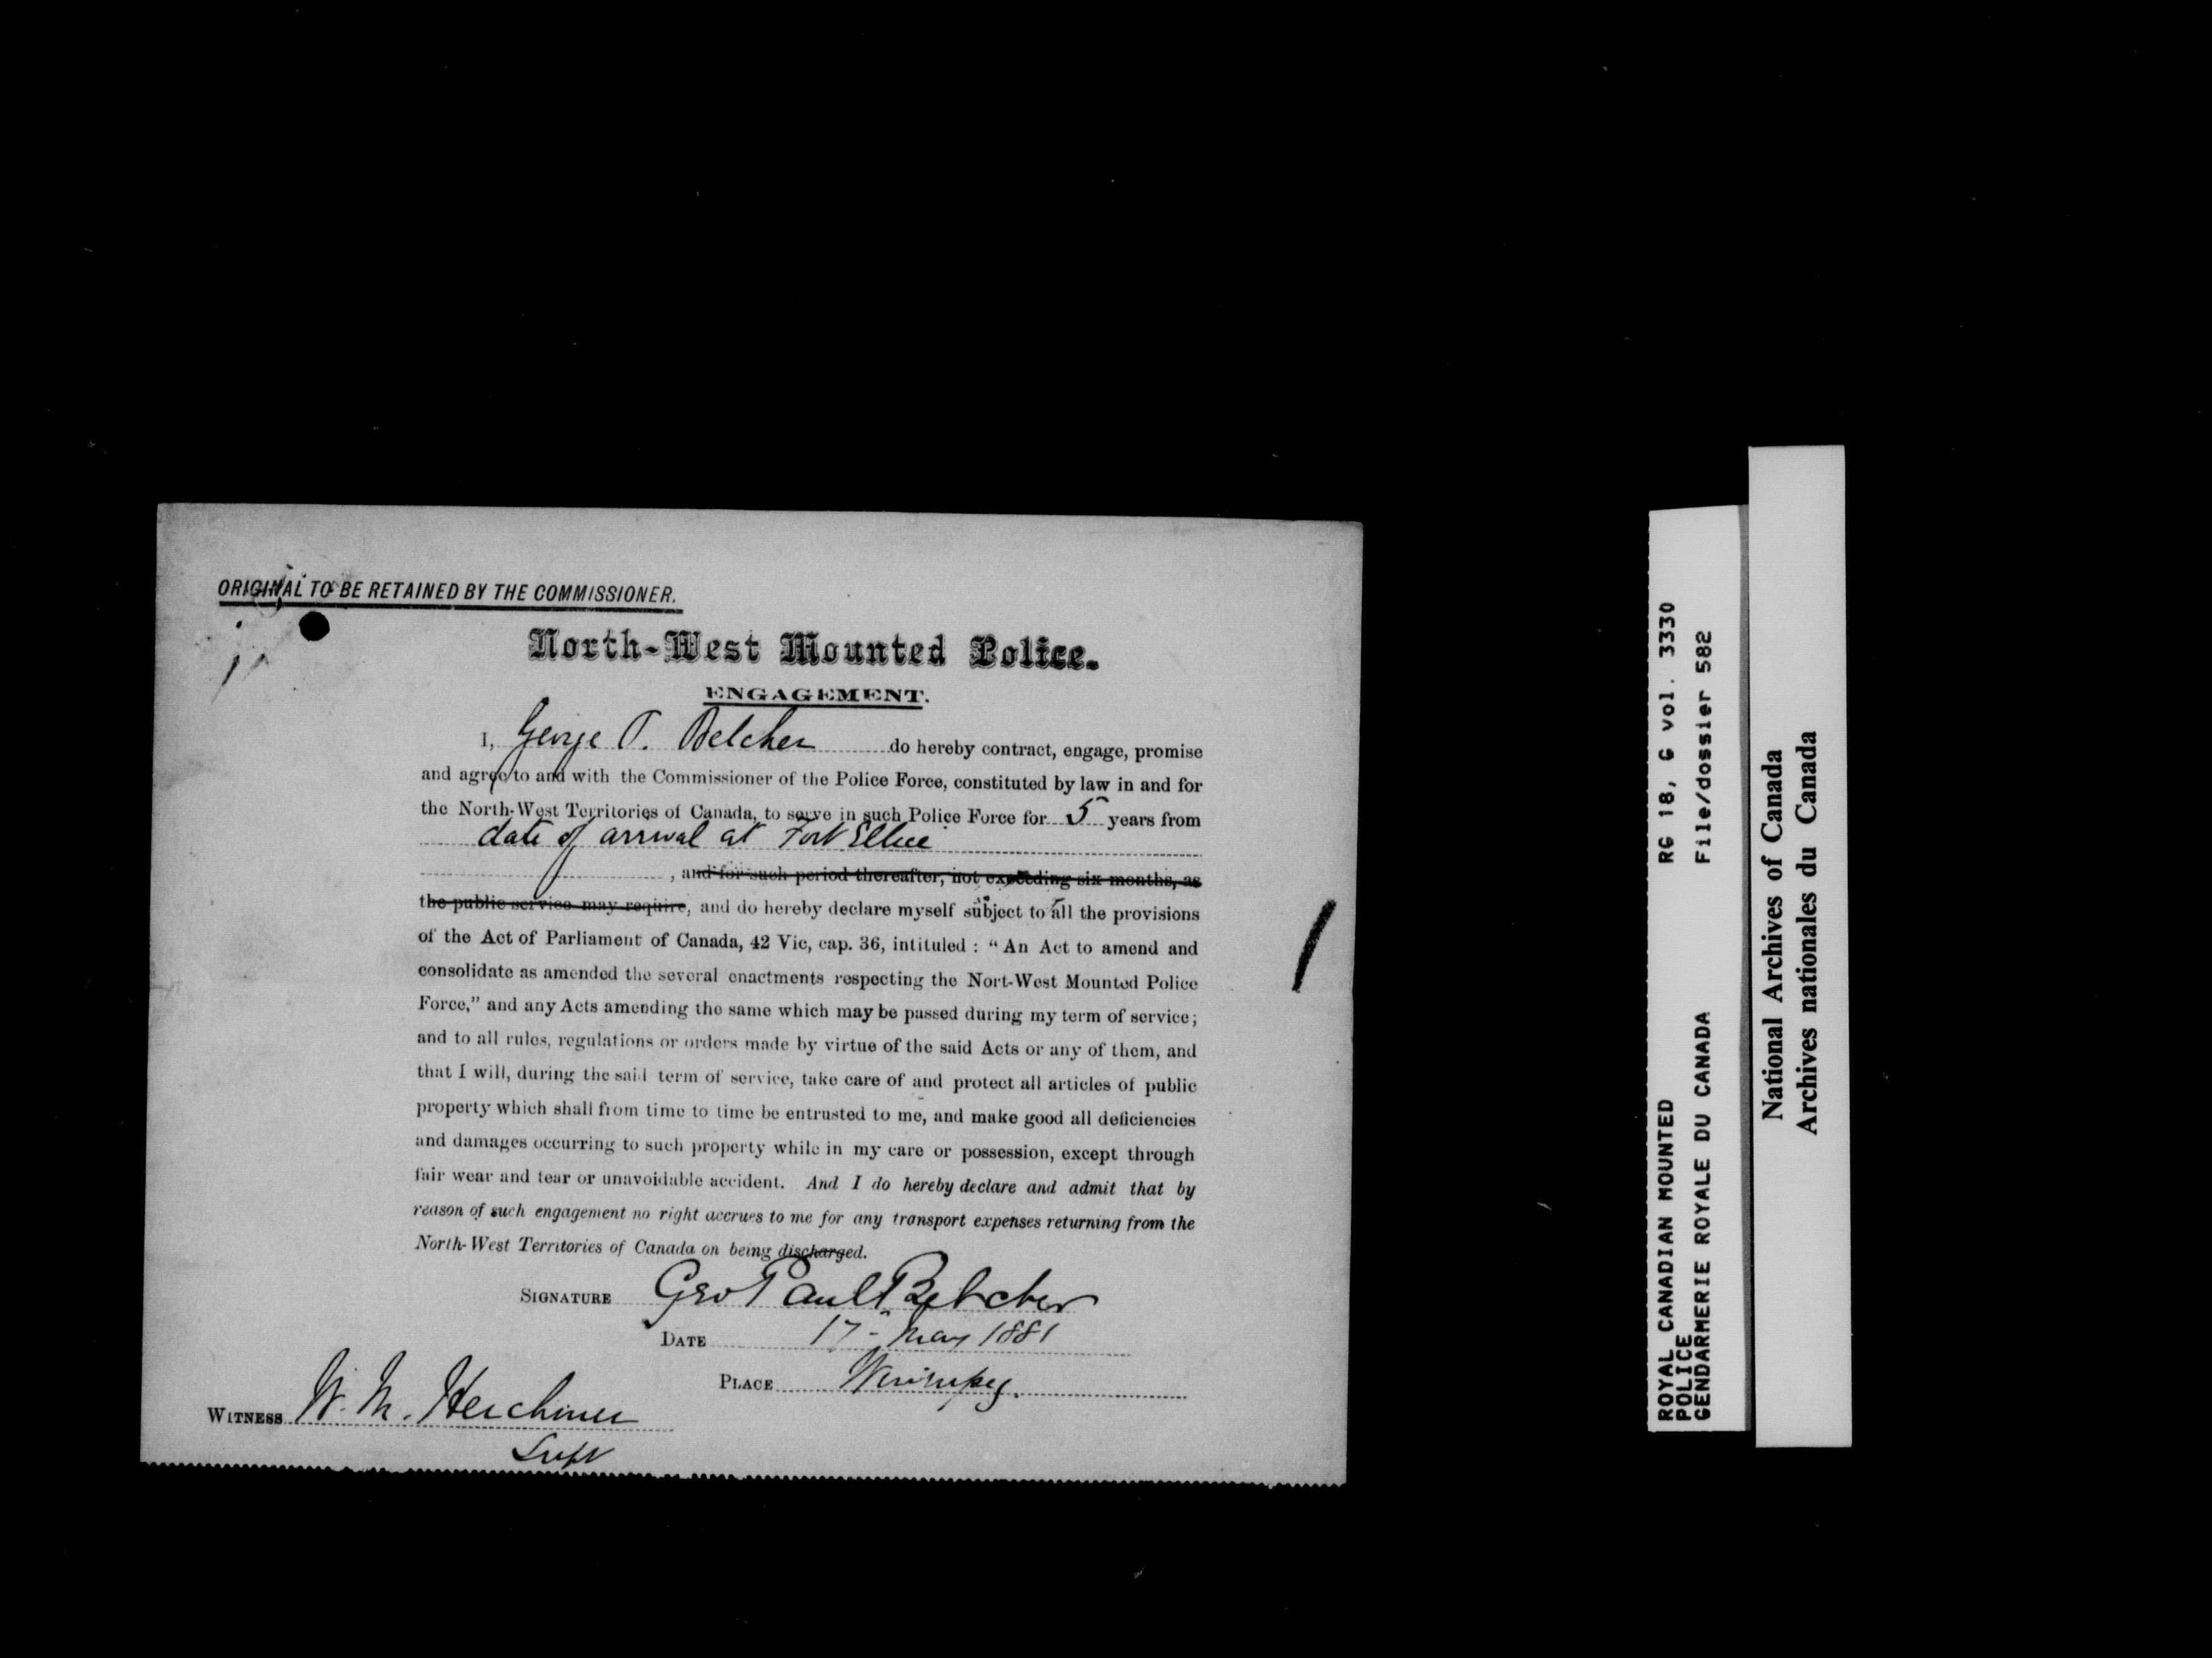 ORIGINAL TO BE RETAINED BY THE COMMISSIONER.
North-West Mounted Police.
ENGAGEMENT.
I, George P. Belcher do hereby contract, engage, promise
and agree to and with the Commissioner of the Police Force, constituted by law in and for
the North-West Territories of Canada, to serve in such Police Force for 5 years from
date of arrival at Fort Ellice
, and for such period thereafter, not exceeding six months, as
the public service may require, and do hereby declare myself subject to all the provisions
of the Act of Parliament of Canada, 42 Vic, cap. 36, intituled : “ An Act to amend and
consolidate as amended the several enactments respecting the Nort-West Mounted Police
Force,” and any Acts amending the same which may be passed during my term of service;
and to all rules, regulations or orders made by virtue of the said Acts or any of them, and
that I will, during the said term of service, take care of and protect all articles of public
property which shall from time to time be entrusted to me, and make good all deficiencies
and damages occurring to such property while in my care or possession, except through
fair wear and tear or unavoidable accident. And I do hereby declare and admit that by
reason of such engagement no right accrues to me for any transport expenses returning from the
North-West Territories of Canada on being discharged.
SIGNATURE Geo Paul Belcher
DATE 17 - May 1881
PLACE Winnipeg.
WITNESS W. M. Herchmer
Supt
ROYAL CANADIAN MOUNTED RG 18, G vol. 3330
POLICE
GENDARMERIE ROYALE DU CANADA File/dossier 582
National Archives of Canada
Archives nationales du Canada